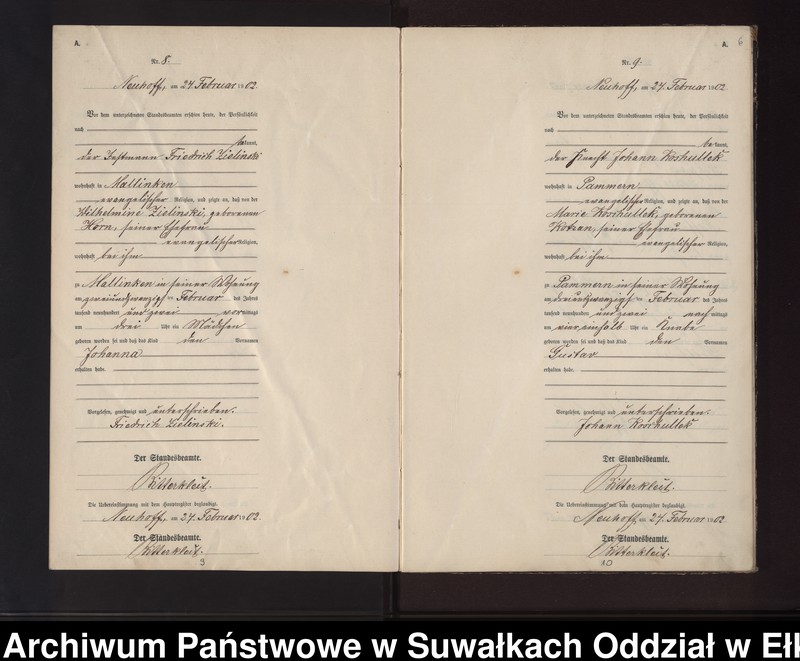 A.
Nr. 8.
Neuhoff, am 24. Februar 1902.
Vor dem unterzeichneten Standesbeamten erschien heute, der Persönlichkeit
nach
bekannt,
der Instmann Friedrich Zielinski
wohnhaft in Mallinken
evangelischer Religion, und zeigte an, daß von der
Wilhelmine Zielinski, geborenen
Horn, seiner Ehefrau
evangelischer Religion,
wohnhaft bei ihm
zu Mallinken in seiner Wohnung
am zweiundzwanzigsten Februar des Jahres
tausend neunhundert und zwei vormittags
um drei Uhr ein Mädchen
geboren worden sei und daß das Kind den Vornamen
Johanna
erhalten habe.
Vorgelesen, genehmigt und unterschrieben.
Friedrich Zielinski.
Der Standesbeamte.
Ritterkleit.
Die Uebereinstimmung mit dem Hauptregister beglaubigt.
Neuhoff, am 24. Februar 1902.
Der Standesbeamte.
Ritterkleit.
9
A. 6
Nr. 9.
Neuhoff, am 24. Februar 1902
Vor dem unterzeichneten Standesbeamten erschien heute, der Persönlichkeit
nach
bekannt,
der Knecht Johann Koschullek
wohnhaft in Pammern
evangelischer Religion, und zeigte an, daß von der
Marie Koschullek, geborenen
Kotzan, seiner Ehefrau
evangelischer Religion,
wohnhaft bei ihm
zu Pammern in seiner Wohnung
am dreiundzwanzigsten Februar des Jahres
tausend neunhundert und zwei nachmittags
um vier einhalb Uhr ein Knabe
geboren worden sei und daß das Kind den Vornamen
Gustav
erhalten habe.
Vorgelesen, genehmigt und unterschrieben.
Johann Koschullek
Der Standesbeamte.
Ritterkleit.
Die Uebereinstimmung mit dem Hauptregister beglaubigt.
Neuhoff, am 24. Februar 1902
Der Standesbeamte.
Ritterkleit.
10
Archiwum Państwowe w Suwałkach Oddział w Ełk